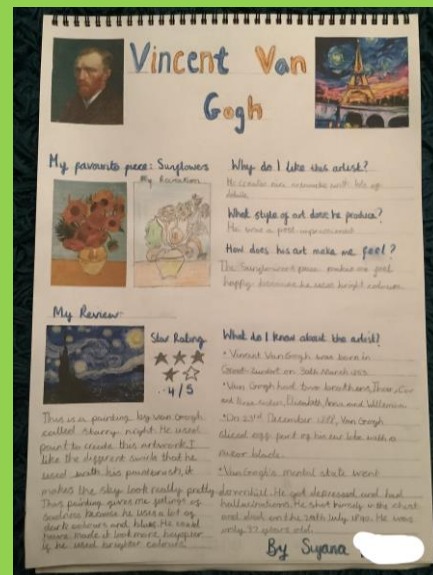 Vincent Van
Gogh
My favourite piece: Sunflowers
My Recreation
Why do I like this artist?
He creates his artworks with lots of
detail.
What style of art does he produce?
He was a post-impressionist
How does his art make me feel?
The Sunflowers piece makes me feel
happy because he uses bright colours.
My Review:
Star Rating
4/5
This is a painting by Van Gogh
called starry night. He used
paint to create this artwork. I
like the different swirls that he
used with his paintbrush, it
makes the sky look really pretty
This painting gives me feelings of
sadness because he uses a lot of
dark colours and blues. He could
have made it look more
if he used brighter colours.
What do I know about the artist?
• Vincent Van Gogh was born in
on 30th March 1853
• Van Gogh had two brothers, Theo, Cor
and three sisters, Elisabeth, Anna and
• On 23rd December 1888, Van Gogh
sliced off part of his ear lobe with a
razor blade.
• Van Gogh's mental state went
downhill. He got depressed and had
hallucinations. He shot himself in the chest
and died on the 29th July 1890. He was
only 37 years old.
By Siyana